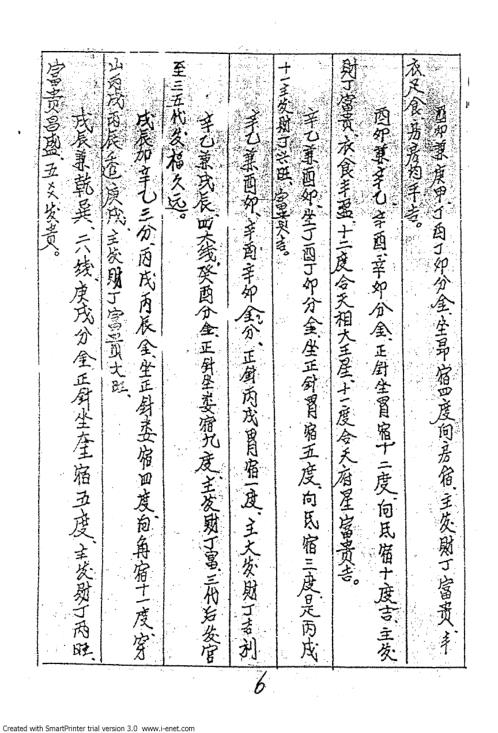 酉卯兼庚甲、丁酉丁卯分金、坐昴宿四度向房宿、主发財丁富贵、丰
衣足食、葛房均平吉。
酉卯兼辛乙、辛酉辛卯分金、正針坐胃宿十二度、向氐宿十度吉、主发
財丁富贵、衣食丰盈、十二度合天相大王星、十一度合天府星富贵吉。
辛乙兼酉卯、坐丁酉丁卯分金、坐正針胃宿五度、向氐宿三度、是丙戌
十一、主发財丁兴旺、富贵吉。
辛乙兼酉卯、辛酉辛卯金分、正針丙戌胃宿一度、主大发財丁吉利
辛乙兼戌辰、四六线、癸酉分金、正針坐娄宿九度、主发財丁富、三代后发官
至三五代发福久远。
戌辰加辛乙三分、丙戌丙辰金、坐正針娄宿四度、向角宿十一度、穿
山丙戌丙辰、透庚戌、主发財丁富贵大旺、
戌辰兼乾巽、二八线、庚戌分金、正針坐奎宿五度、主发財丁两旺、
富贵昌盛、五爻发贵。
6
Created with SmartPrinter trial version 3.0 www.i-enet.com